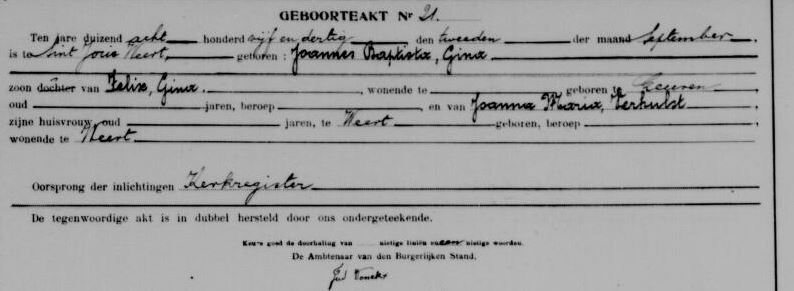 GEBOORTEAKT Nr 21.
Ten jare duizend acht honderd vijf en dertig den tweeden der maand September
is te Sint Joris Weert geboren : Joannes Baptista, Gina
zoon dochter van Felix, Gina. , wonende te geboren te Leuven
oud jaren, beroep , en van Joanna Maria, Verhulst
zijne huisvrouw, oud jaren, te Weert geboren, beroep
wonende te Weert
Oorsprong der inlichtingen Kerkregister
De tegenwoordige akt is in dubbel hersteld door ons ondergeteekende.
Keurs goed de doorhaling van nietige liniën en een nietige woorden.
De Ambtenaar van den Burgerlijken Stand,